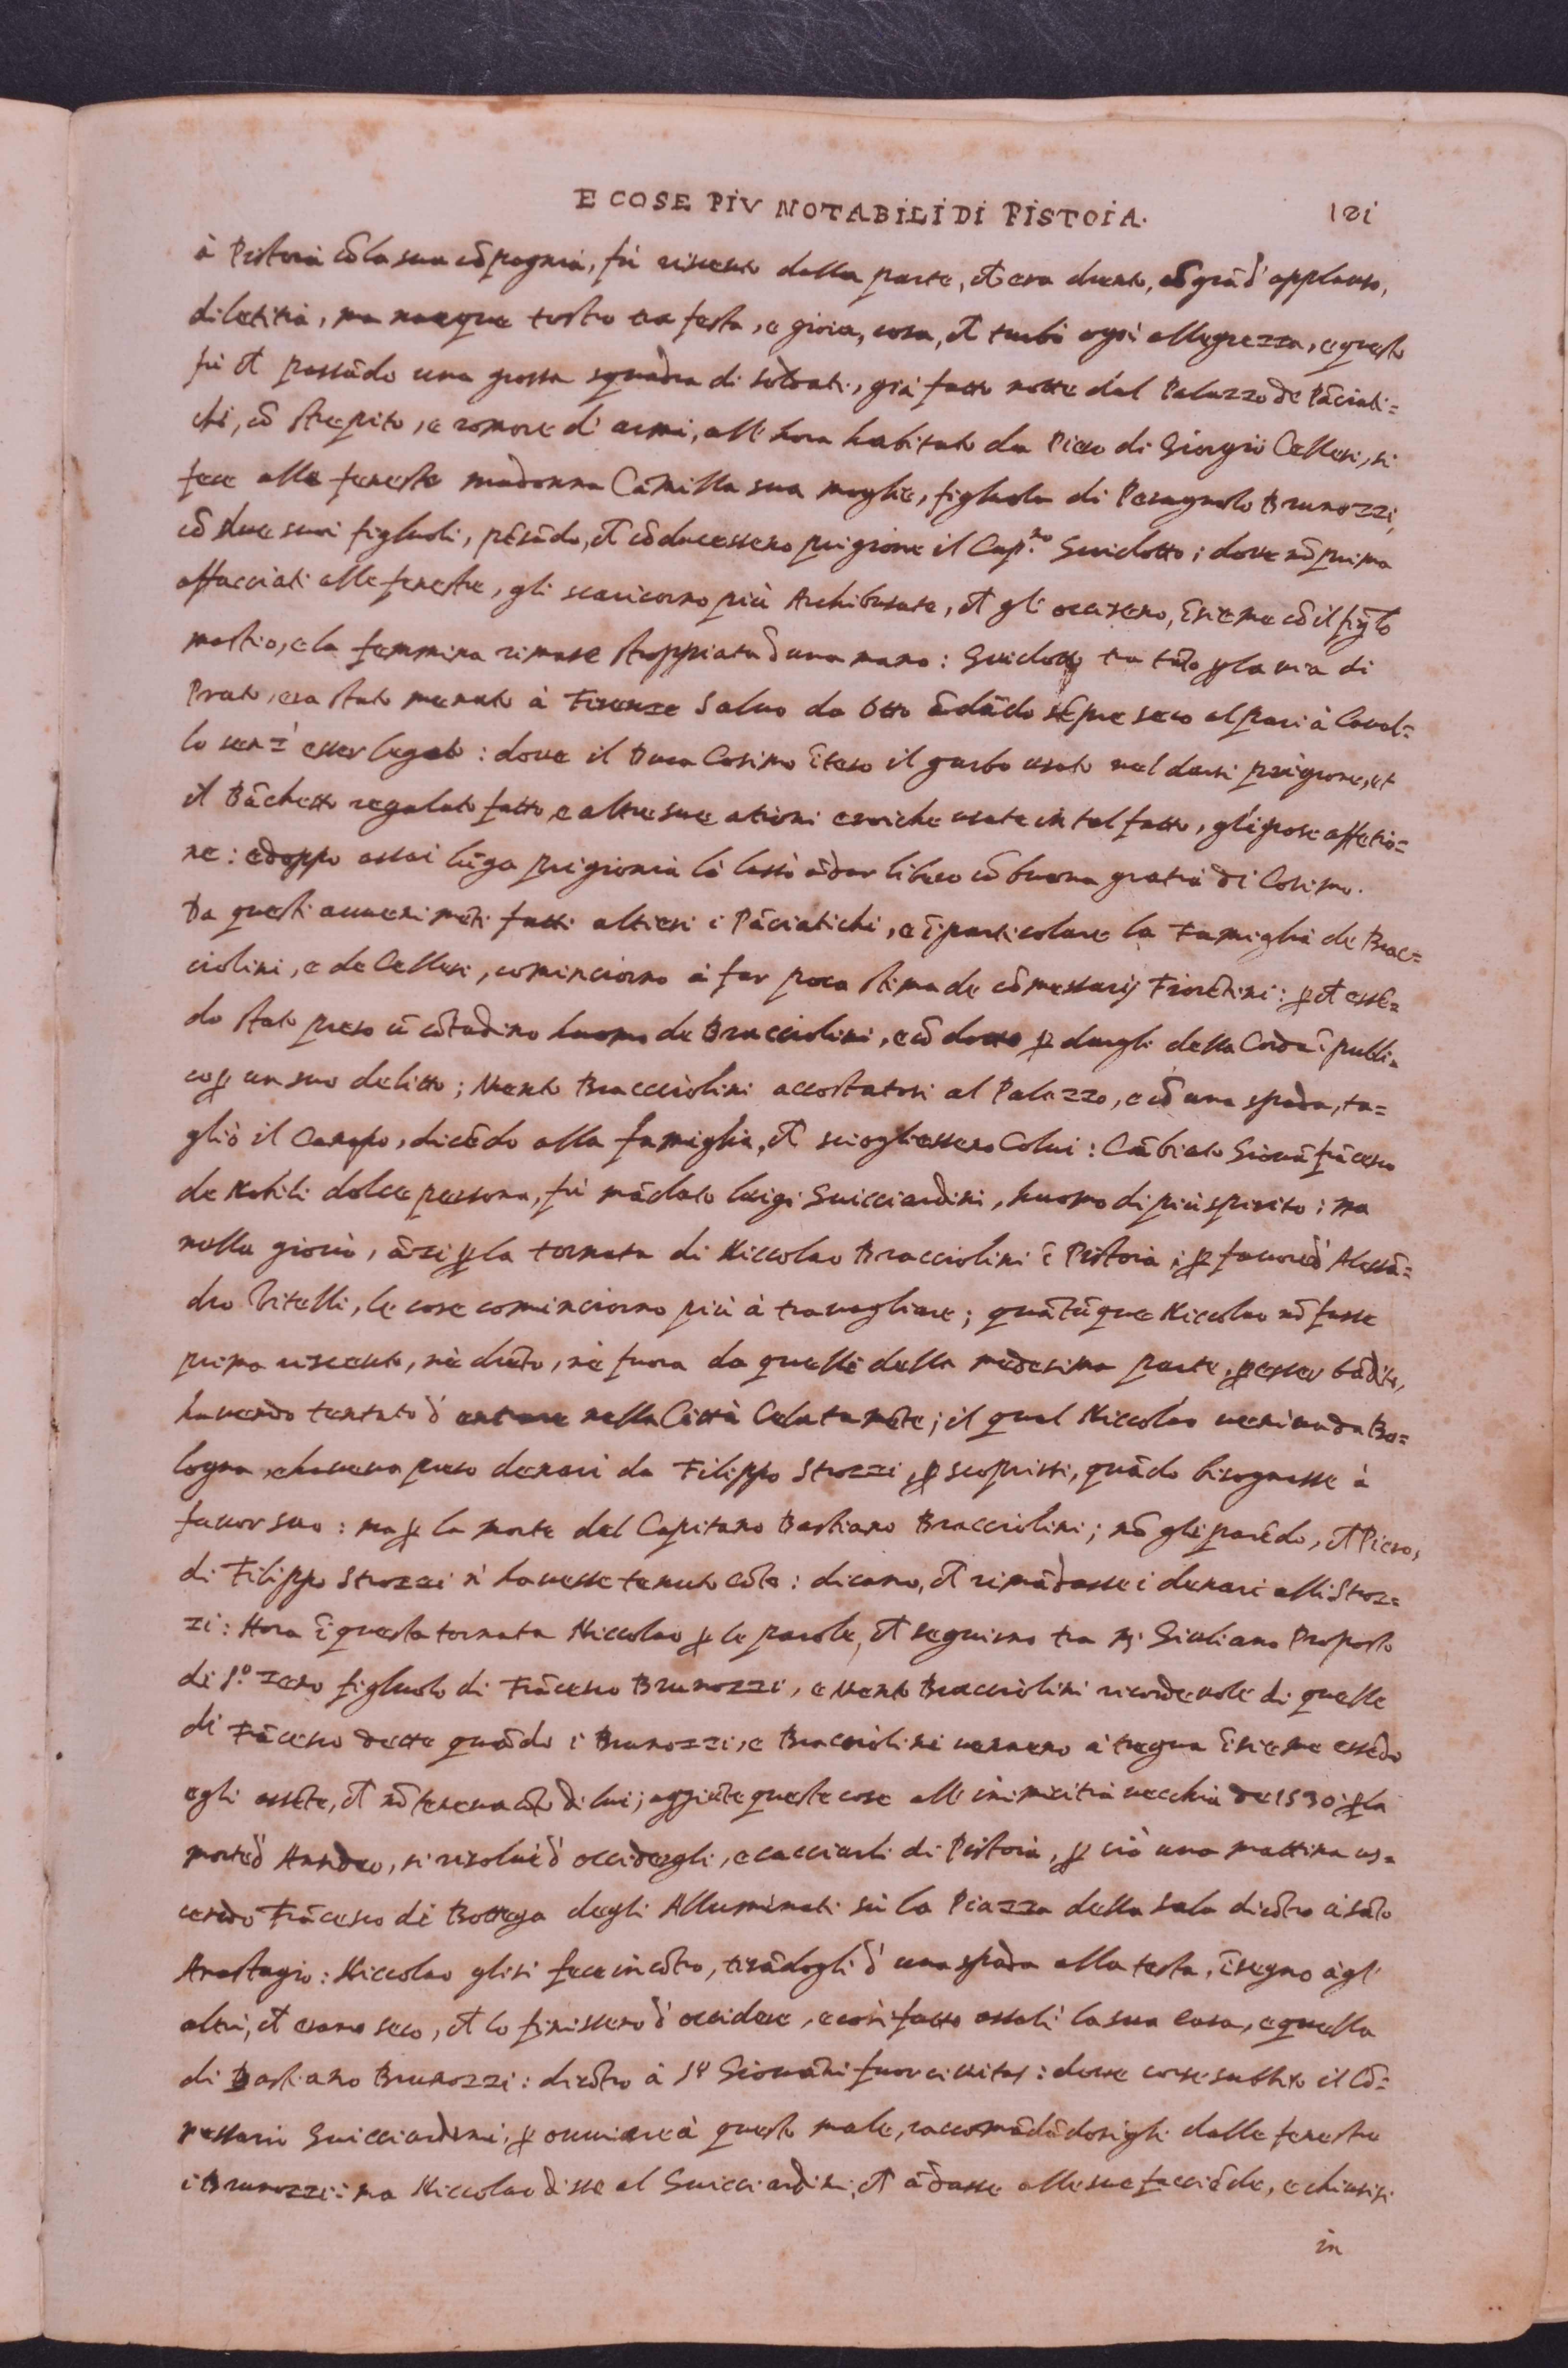 E COSE PIV NOTABILI DI PISTOIA. 121
à Pistoia cõ la sua cõpagnia, fù riceuuto dalla parte, et era drento, cõ grã d'applauso,
di letitia, ma nacque tosto tra festa, e gioia, cosa, et turbò ogni allegrezza, e questo
fù et passãdo una grossa squadra di soldati, già fatto notte dal Palazzo de Pãciati=
chi, cõ strepito, e romore d'armi, all'hora habitato da Piero di Giorgio Cellesi, si
fece alle fenestre madonna Cãmilla sua moglie, figliuola di Pesagnolo Brunozzi,
cõ due suoi figliuoli, pẽsãdo, et cõducessero prigione il Cap.no Guidotto; doue nõ prima
affacciati alle fenestre, gli scaricorno più Archibusate, et gli occiseno, ĩsieme cõ il figl̃o
mastio, e la femmina rimase stroppiata d'una mano: Guidotto tra tãto ꝑ la uia di
Prato, era stato menato à Firenze saluo da Otto ãdãdo sẽpre seco al pari à Caual=
lo senz'esser legato: doue il Duca Cosimo ĩteso il garbo usato nel darsi prigione, et
il Bãchetto regalato fatto, e altre sue ationi eroiche usate in tal fatto, gli pose affetio=
ne: e doppo assai lũga prigionia lò lassò ãdar libero cõ buona gratia di Cosimo.
Da questi auuenimẽti fatti altieri i Pãciatichi, e ĩ particolare la Famiglia de Brac=
ciolini, e de Cellesi, cominciorno à far poca stima de cõmessarij Fiorẽtini: ꝑ et essẽ=
do stato preso ũ cõtadino huomo de Bracciolini, e cõdotto ꝑ dargli della Corda ĩ publi=
co ꝑ un suo delitto; Uento Bracciolini accostatosi al Palazzo, e cõ una spada, ta=
gliò il Canapo, dicẽdo alla famiglia, et sciogliessero Colui: Cãbiato Giouãfrãcesco
de Nobili dolce persona, fù mãdato luigi Guicciardini, huomo di più spirito; ma
nulla giouò, ãzi ꝑ la tornata di Niccolao Bracciolini ĩ Pistoia, ꝑ fauore d'Alessã=
dro Vitelli, le cose cominciorno più à trauagliare; quãtũque Niccolao nõ fusse
prima riceuuto, nè drẽto, nè fuora da quelli della medesima parte, ꝑ esser bãdito,
hauendo tentato d'entrare nella Città Celatamẽte; il qual Niccolao ueniua da Bo=
logna, e haueua preso denari da Filippo Strozzi, ꝑ scoprirsi, quãdo bisognasse à
fauor suo: ma ꝑ la morte del Capitano Bastiano Bracciolini; nõ gli parẽdo, et Piero,
di Filippo Strozzi n'hauesse tenuto cõto: dicano, et rimãdasse i denari alli Stroz=
zi: Hora ĩ questa tornata Niccolao ꝑ le parole, et seguirno tra M. Giuliano Proposto
di S.o Zeno figliuolo di Frãcesco Brunozzi, e Uento Bracciolini ricordeuole di quelle
di Frãcesco dette quãdo i Brunozzi, e Bracciolini uennero à tregua ĩsieme essẽdo
egli assẽte, et nõ teneua cõto di lui; aggiũte queste cose all'inimicitia uecchia de 1530 ꝑ la
morte d'Andreo, si risoluè d'occidergli, e cacciarli di Pistoia, ꝑ ciò una mattina us=
cendo Frãcesco di Bottega degli Alluminati sù la Piazza della Sala dirõtro à sãto
Anastagio: Niccolao gli si fece incõtro, tirãdogli d'una spada alla testa, ĩ segno àgl'
altri, et erano seco, et lo finissero d'occidere, e così fatto assalì la sua casa, e quella
di Bastiano Brunozzi: dirõtro à S.o Giouãni fuorciuitas: doue corse subbito il Cõ=
messario Guicciardini, ꝑ ouuiare à questo male, raccomãdãdosigli dalle fenestre
i Brunozzi: ma Niccolao disse al Guicciardini, et ãdasse alle sue faccẽde, e chiusisi
in